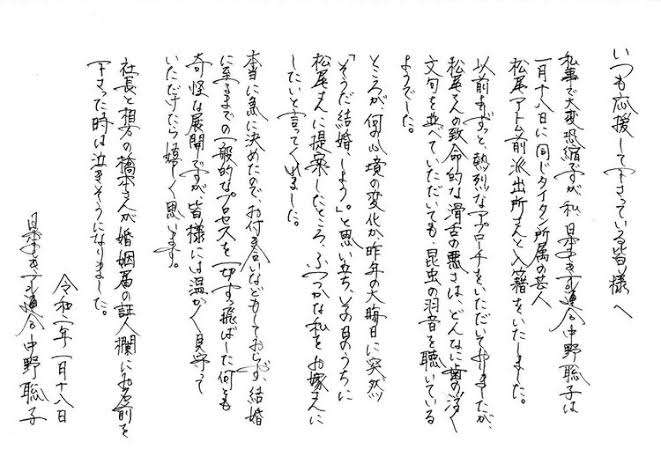 いつも応援して下さっている皆様へ
私事で大変恐縮ですが、私、日本エレキテル連合 中野聡子は
一月十八日に同じタイタン所属の芸人
松尾アトム前派出所さんと入籍をいたしました。
以前よりずっと、熱烈なアプローチをいただいておりましたが、
松尾さんの致命的な滑舌の悪さは、どんなに歯の浮く
文句を並べていただいても、昆虫の羽音を聴いている
ようでした。
ところが、何の心境の変化か昨年の大晦日に突然
「そうだ結婚しよう」。と思い立ち、その日のうちに
松尾さんに提案したところ、ふつつかな私をお嫁さんに
したいと言ってくれました。
本当に急に決めたので、お付き合いなどもしておらず、結婚
に至るまでの一般的なプロセスを一切すっ飛ばした何とも
奇怪な展開ですが、皆様には温かく見守って
いただけたら嬉しく思います。
社長と相方の橋本さんが婚姻届の証人欄にお名前を
下さった時は泣きそうになりました。
令和二年一月十八日
日本エレキテル連合 中野聡子